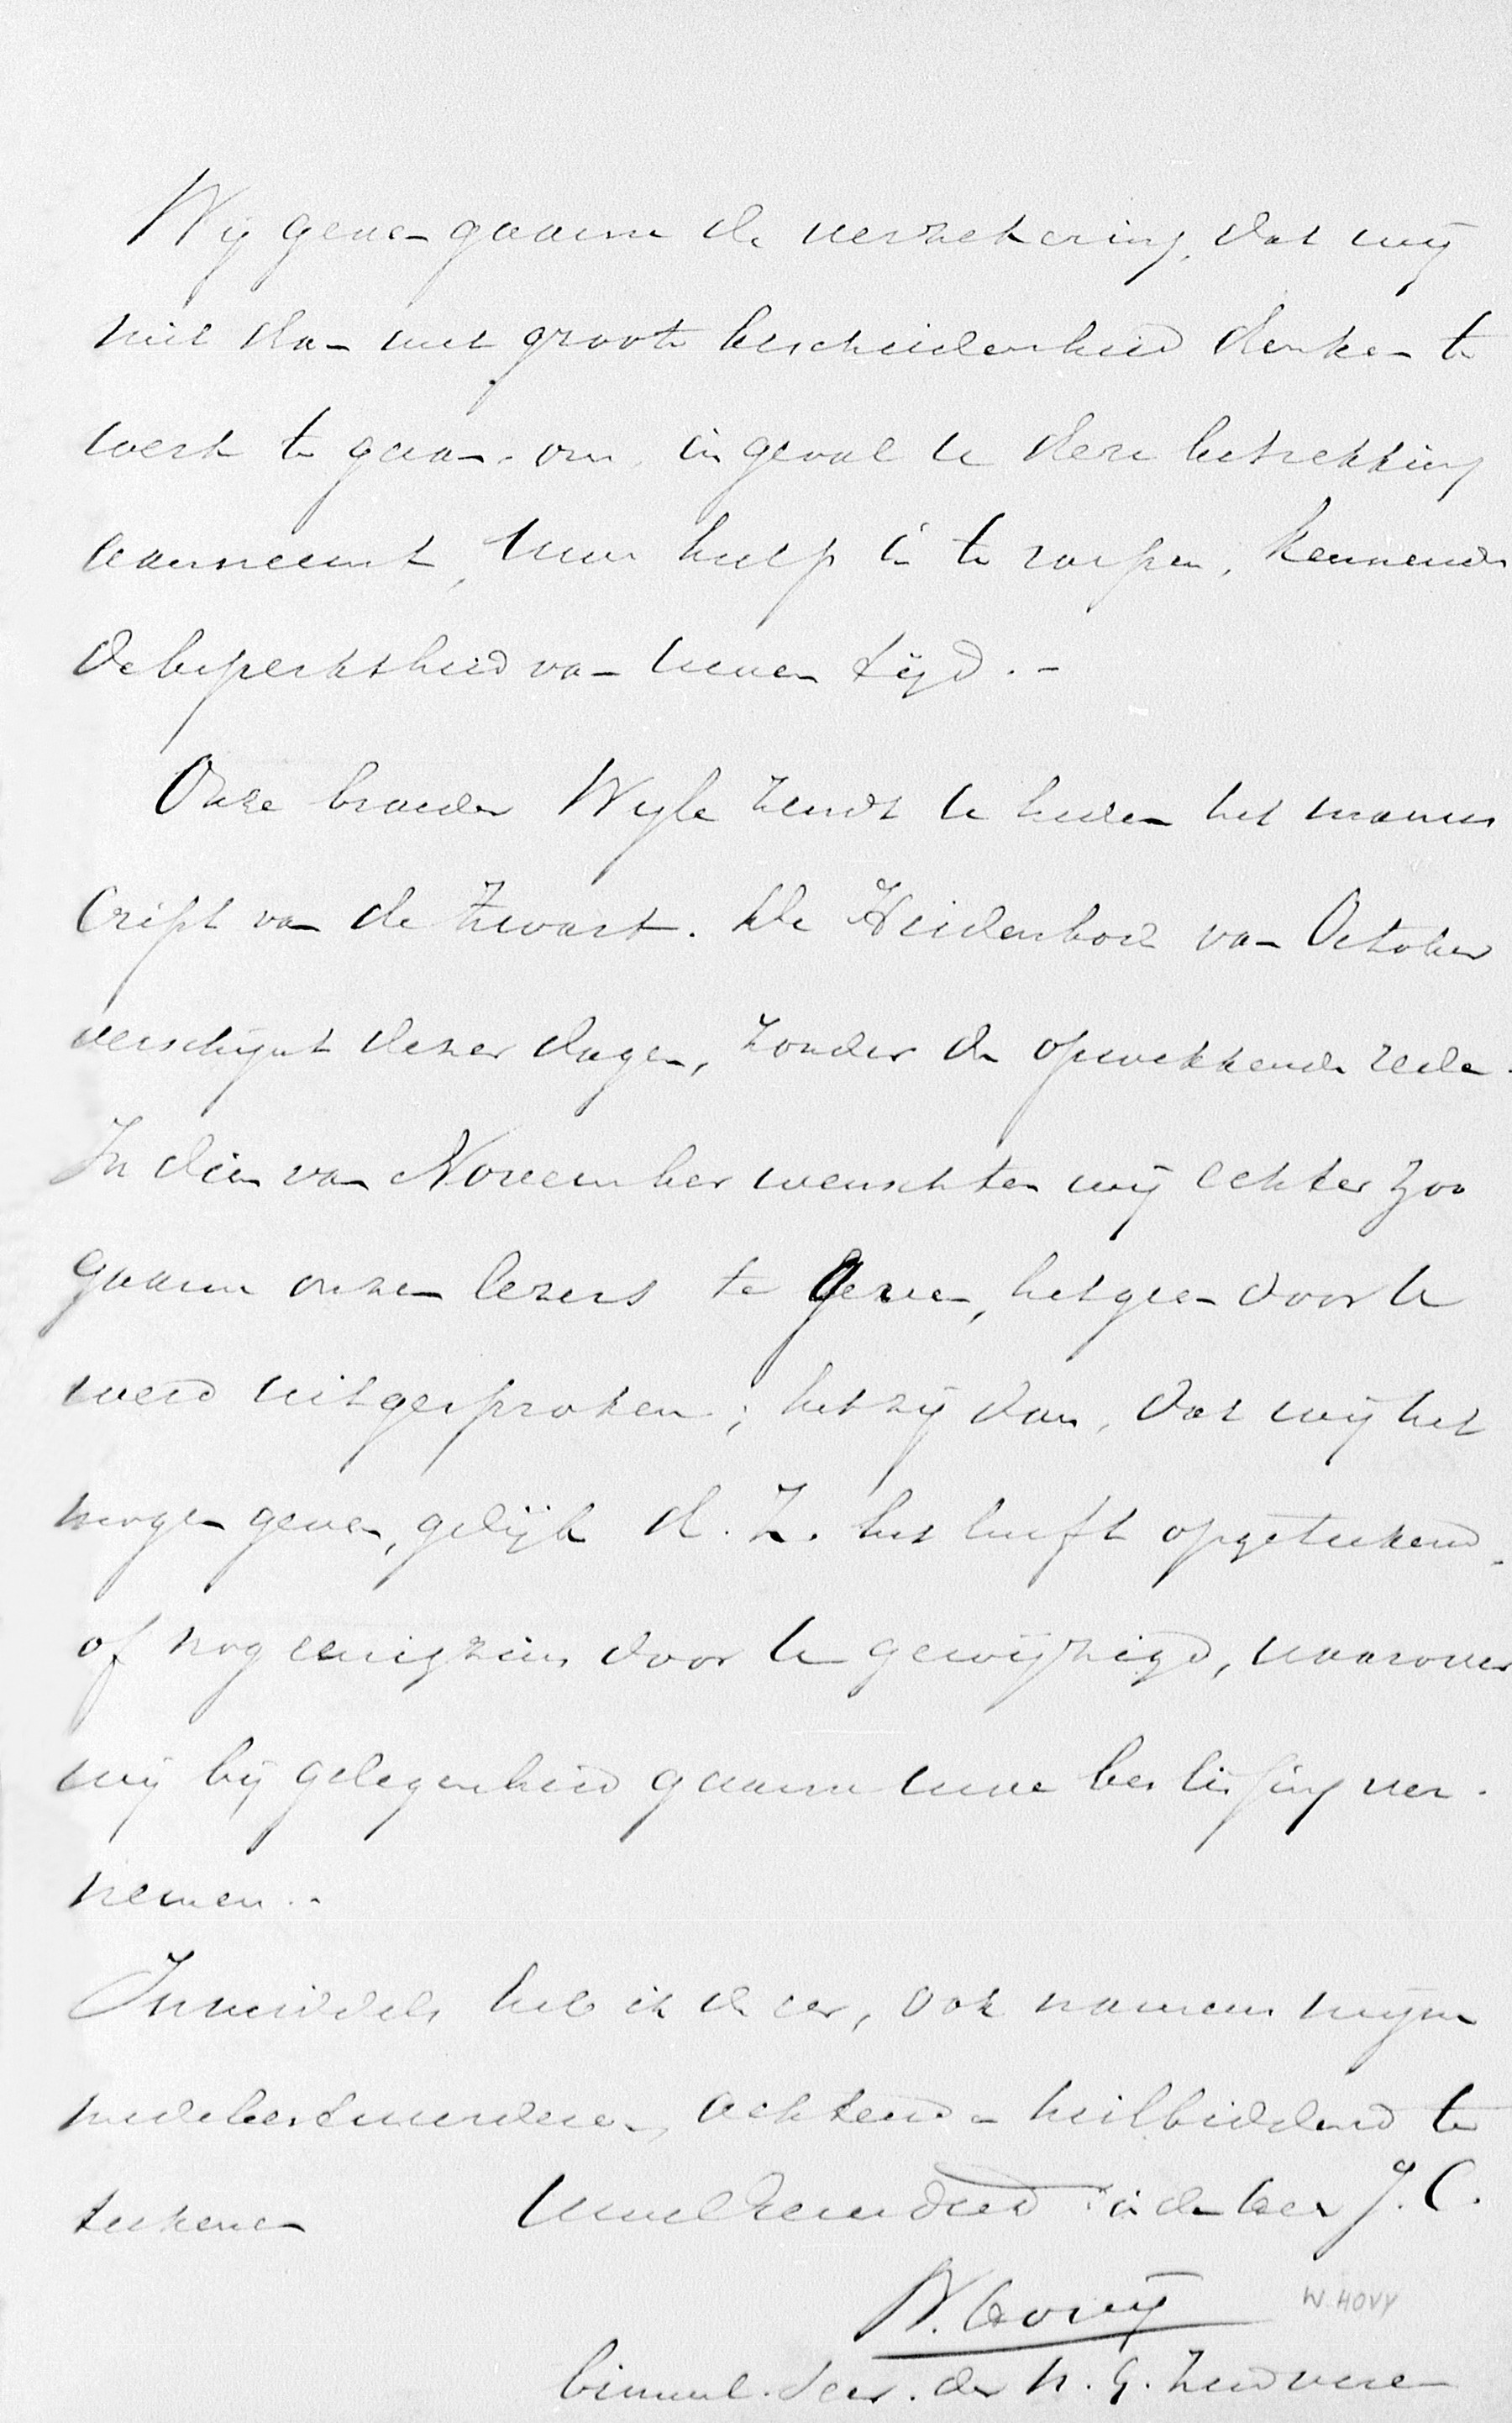 Wij geven gaarne de verzekering, dat wij
niet dan met groote bescheidenheid denken te
werk te gaan, om, in geval U deze betrekking
aanneemt, Uwe hulp in te roepen, kennende
de beperktheid van Uwen tijd. -
Onze broeder Wijle zendt U heden het manus
cript van de Zwart. De Heidenbode van October
verschijnt dezer dagen, zonder de opwekkende rede.
In dien van November wenschten wij echter zoo
gaarne onzen lezers te geven, hetgeen door U
werd uitgesproken; hetzij dan, dat wij het
mogen geven, gelijk d. Z. het heeft opgeteekend,
of nog eenigzins door U gewijzigd, waarover
wij bij gelegenheid gaarne Uwe beslissing ver-
nemen. -
Inmiddels heb ik de eer, ook namens mijne
medebestuurderen, achtend en heilbiddend te
teekenen Uw in den Heer J. C.
W. Hovy
W. HOVY
binnenl. Secr. der N. G. Zendvereen